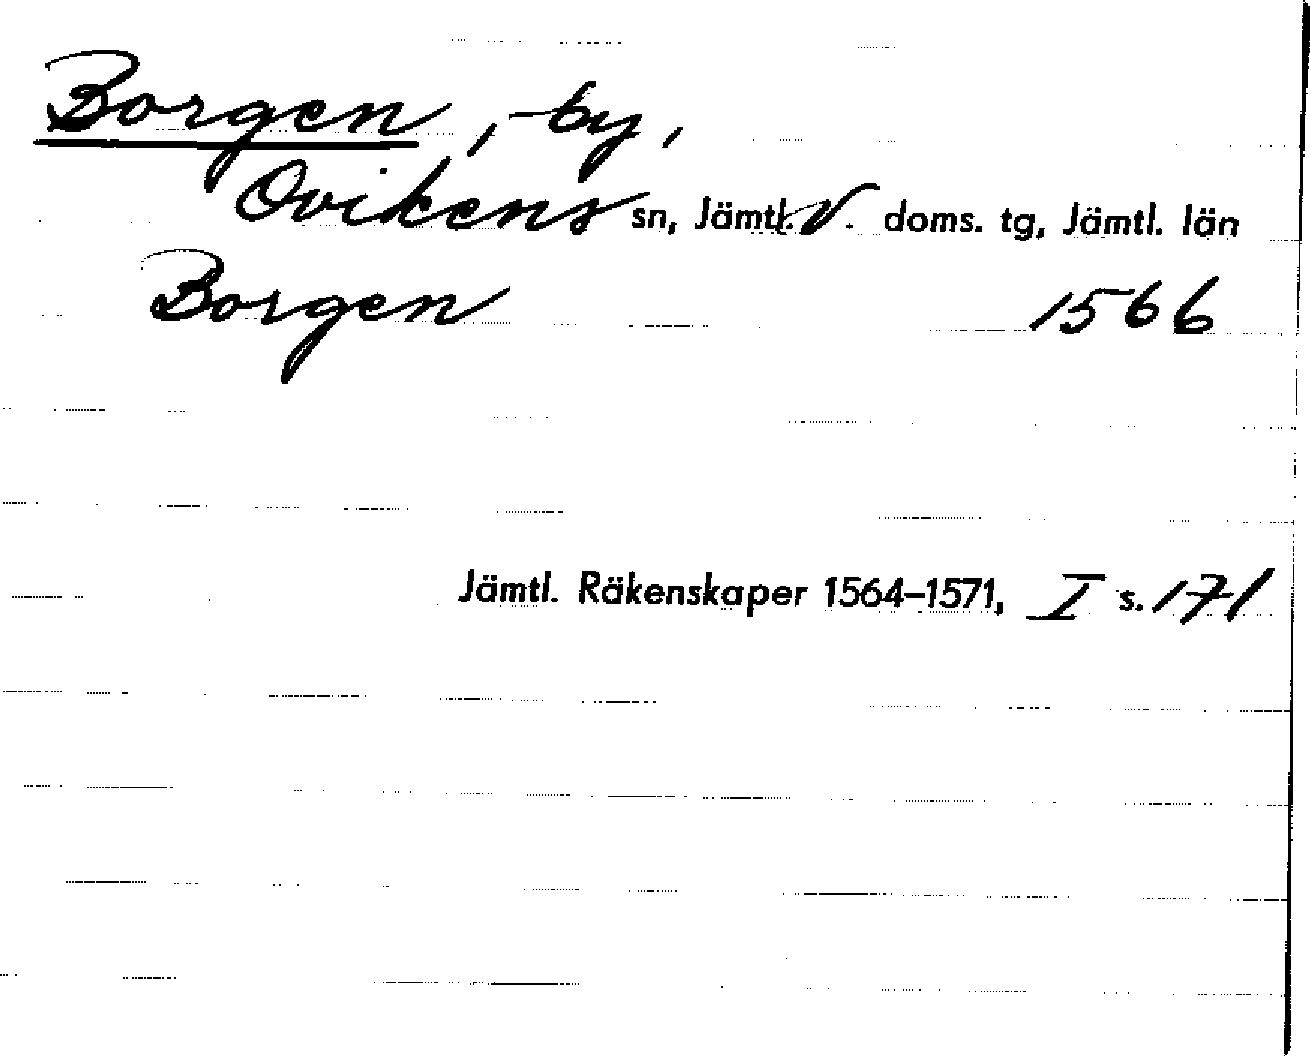 Borgen, by,
Ovikens sn, Jämtl. V. doms. tg, Jämtl. län
Borgen 1566
Jämtl. Räkenskaper 1564–1571, I s. 171